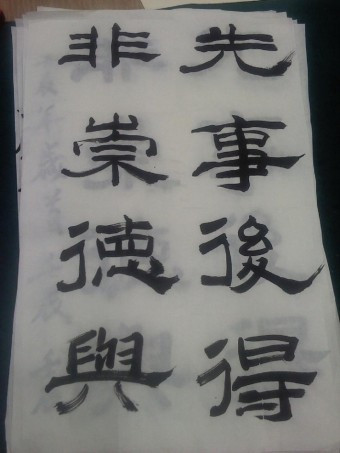 先事後得
非崇德與